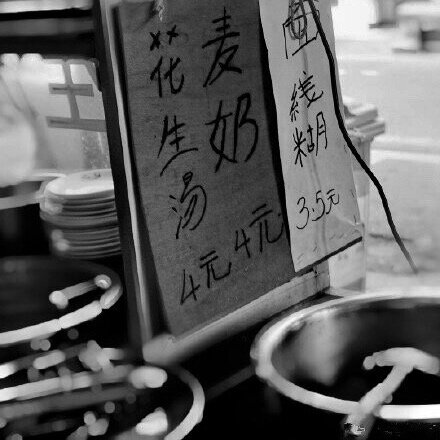 麦奶
4元
花生汤
4元
面线糊
3.5元